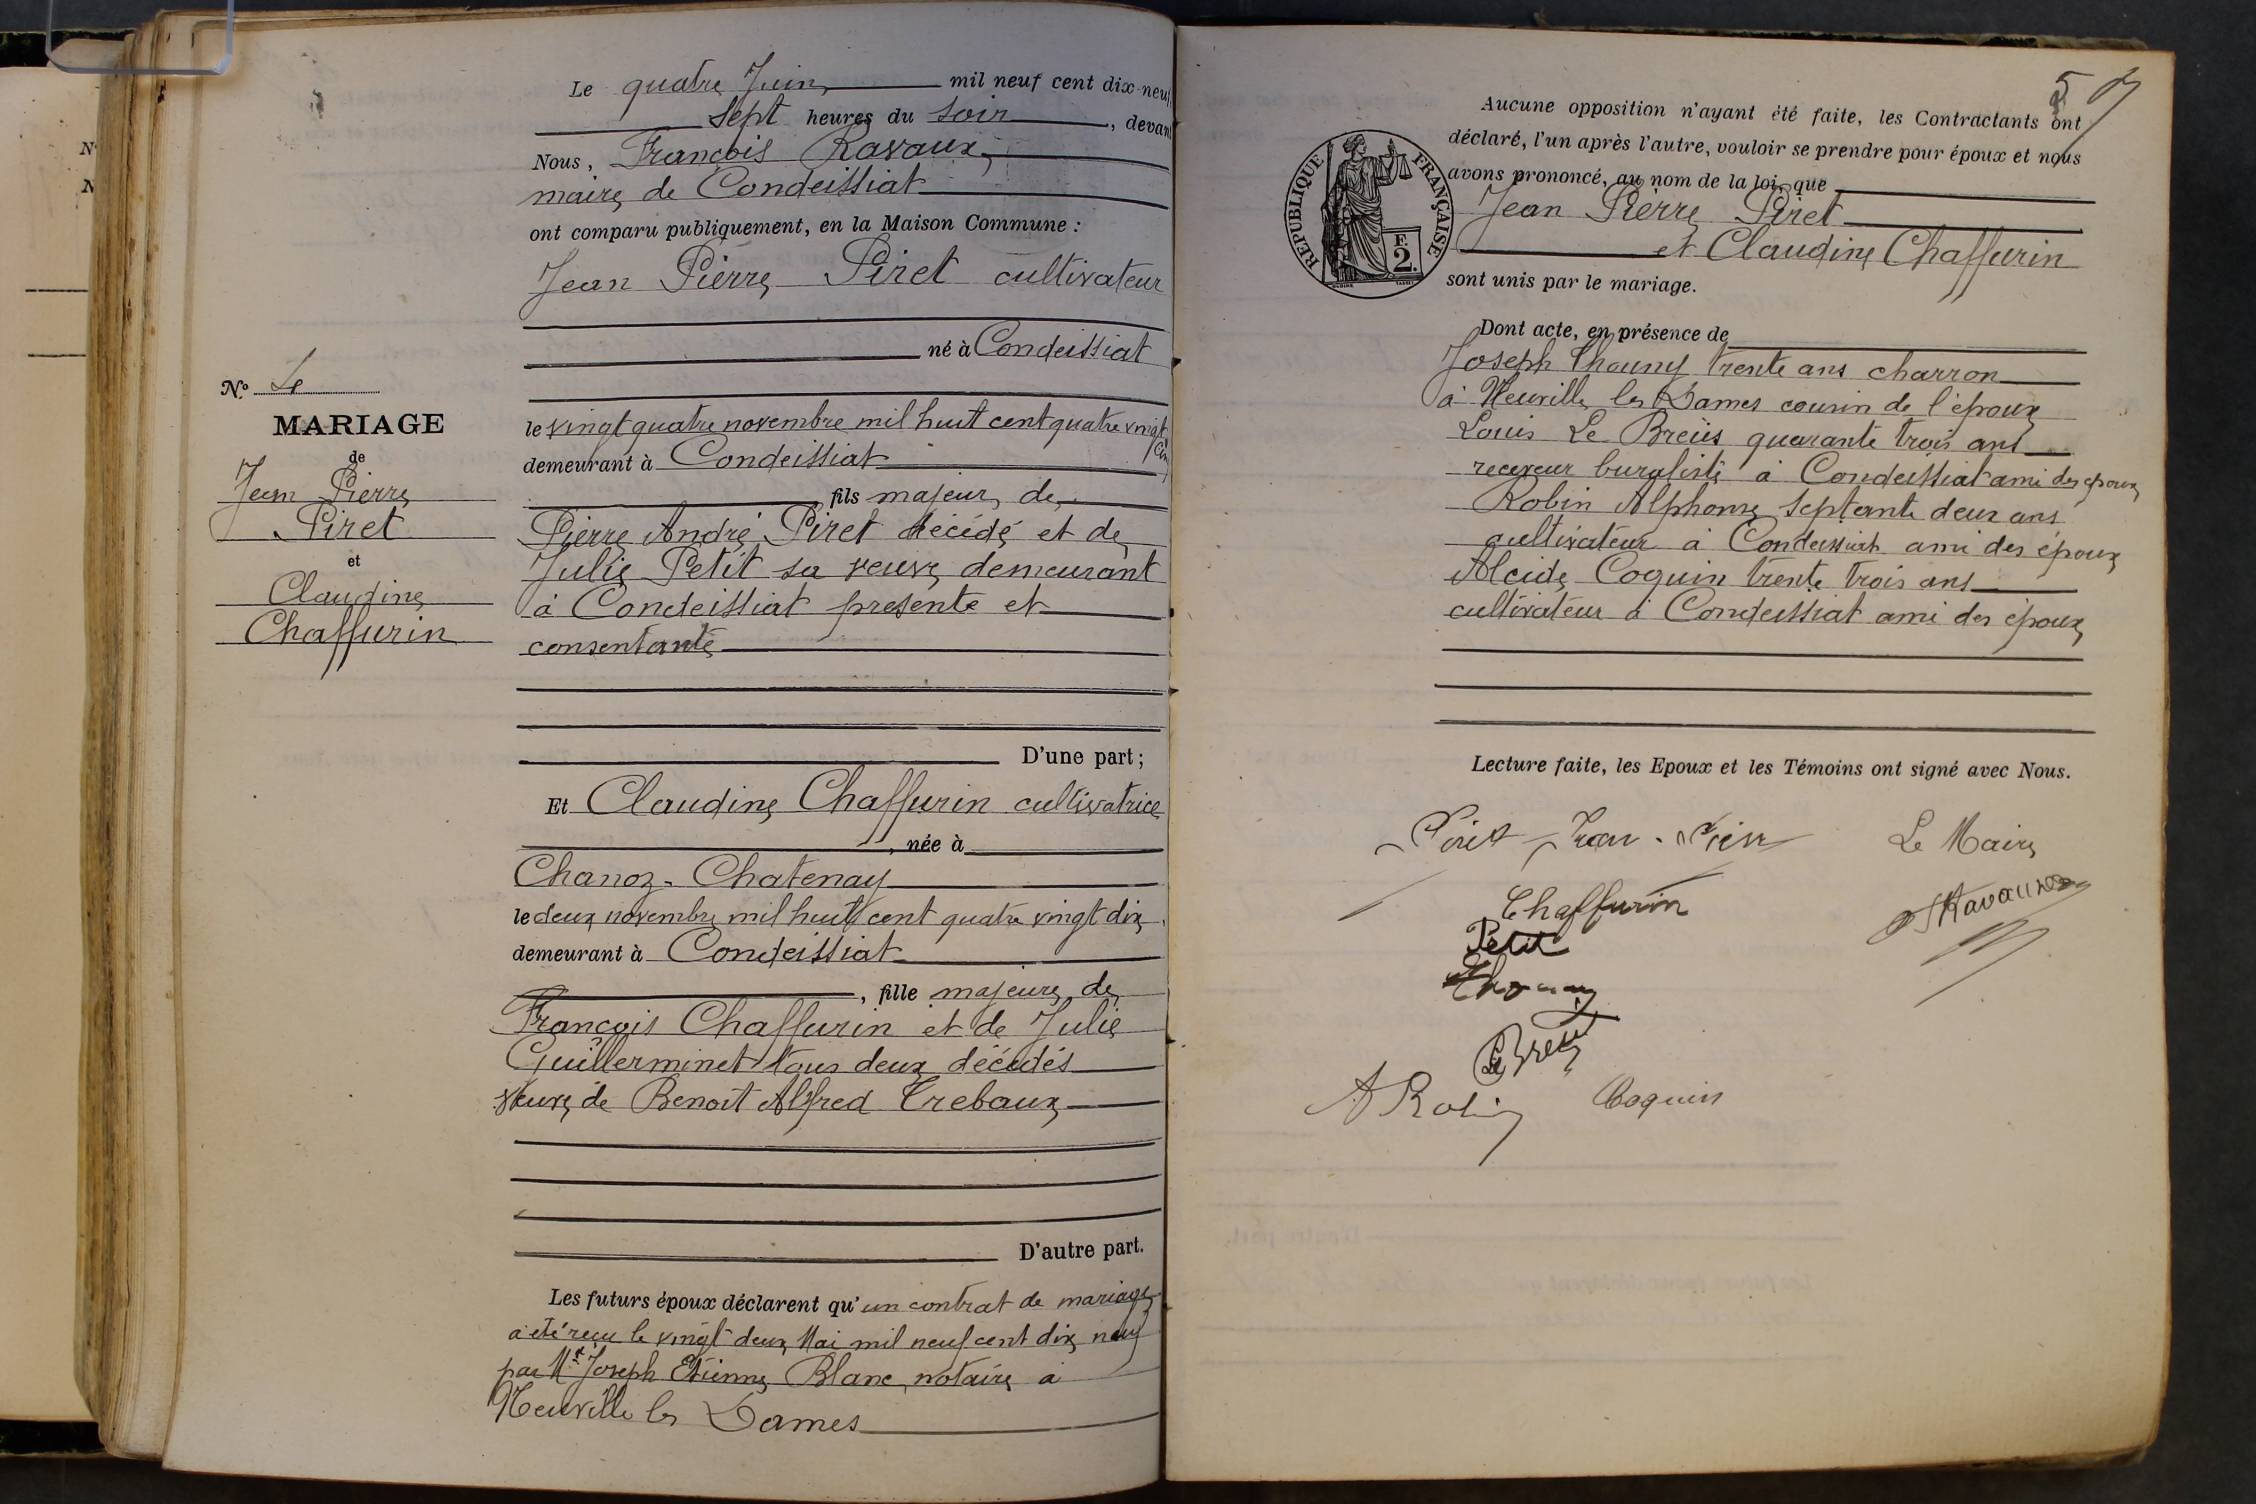 Le quatre Juin mil neuf cent dix-neuf,
sept heures du soir, devant
Nous, François Ravaux,
maire de Condeissiat
ont comparu publiquement, en la Maison Commune :
Jean Pierre Piret cultivateur
né à Condeissiat
le vingt quatre novembre mil huit cent quatre vingt
cinq
demeurant à Condeissiat
fils majeur de
Pierre André Piret décédé et de
Julie Petit sa veuve demeurant
à Condeissiat présente et
consentante
D'une part ;
Et Claudine Chaffurin cultivatrice
, née à
Chanoz-Chatenay
le deux novembre mil huit cent quatre vingt dix
demeurant à Condeissiat
, fille majeure de
François Chaffurin et de Julie
Guillerminet tous deux décédés
veuve de Benoit Alfred Trebaux
D'autre part.
Les futurs époux déclarent qu'un contrat de mariage
a été reçu le vingt deux Mai mil neuf cent dix neuf
par Me Joseph Etienne Blanc, notaire à
Neuville les Dames
N°
MARIAGE
de
Jean Pierre
Piret
et
Claudine
Chaffurin
5
Aucune opposition n'ayant été faite, les Contractants ont
déclaré, l'un après l'autre, vouloir se prendre pour époux et nous
avons prononcé, au nom de la loi, que
Jean Pierre Piret
et Claudine Chaffurin
sont unis par le mariage.
REPUBLIQUE FRANÇAISE
F.
2.
Dont acte, en présence de
Joseph Thouny trente ans charron
à Neuville les Dames cousin de l'époux
Louis Le Breüs quarante trois ans
receveur buraliste à Condeissiat ami des époux
Robin Alphonse septante deux ans
cultivateur à Condeissiat ami des époux
Alcide Coquin trente trois ans
cultivateur à Condeissiat ami des époux
Lecture faite, les Epoux et les Témoins ont signé avec Nous.
Piret Jean-Pierre
Le Maire
Chaffurin
F Ravaux
Petit
Thouny
Le Breüs
A Robin
Coquin